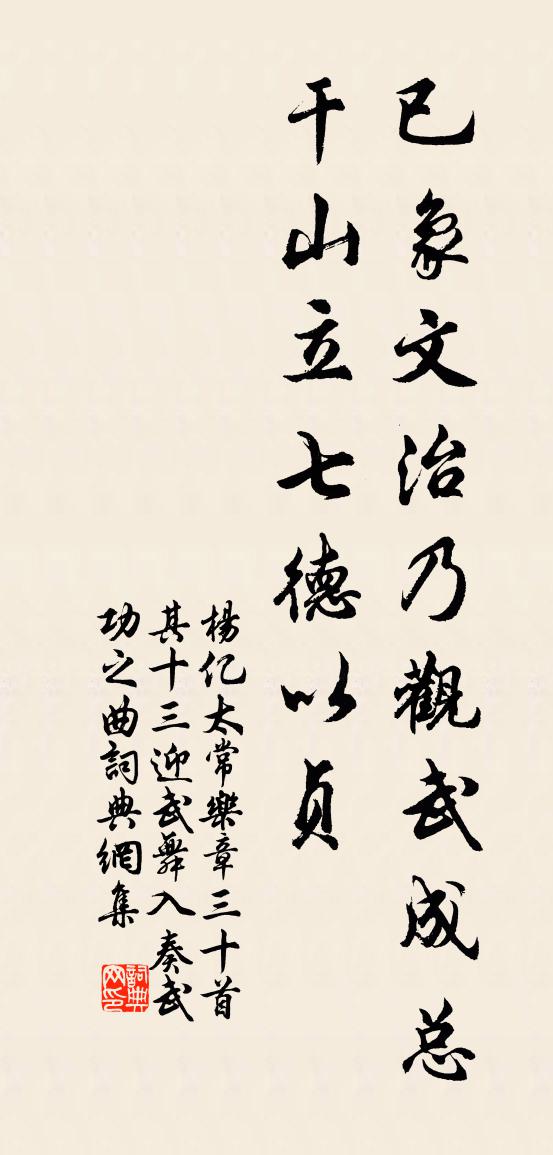 已象文治乃觀武成总
干山立七德以貞
楊亿太常樂章三十首
其十三迎武舞入奏武
功之曲詞典網集
詞典网印